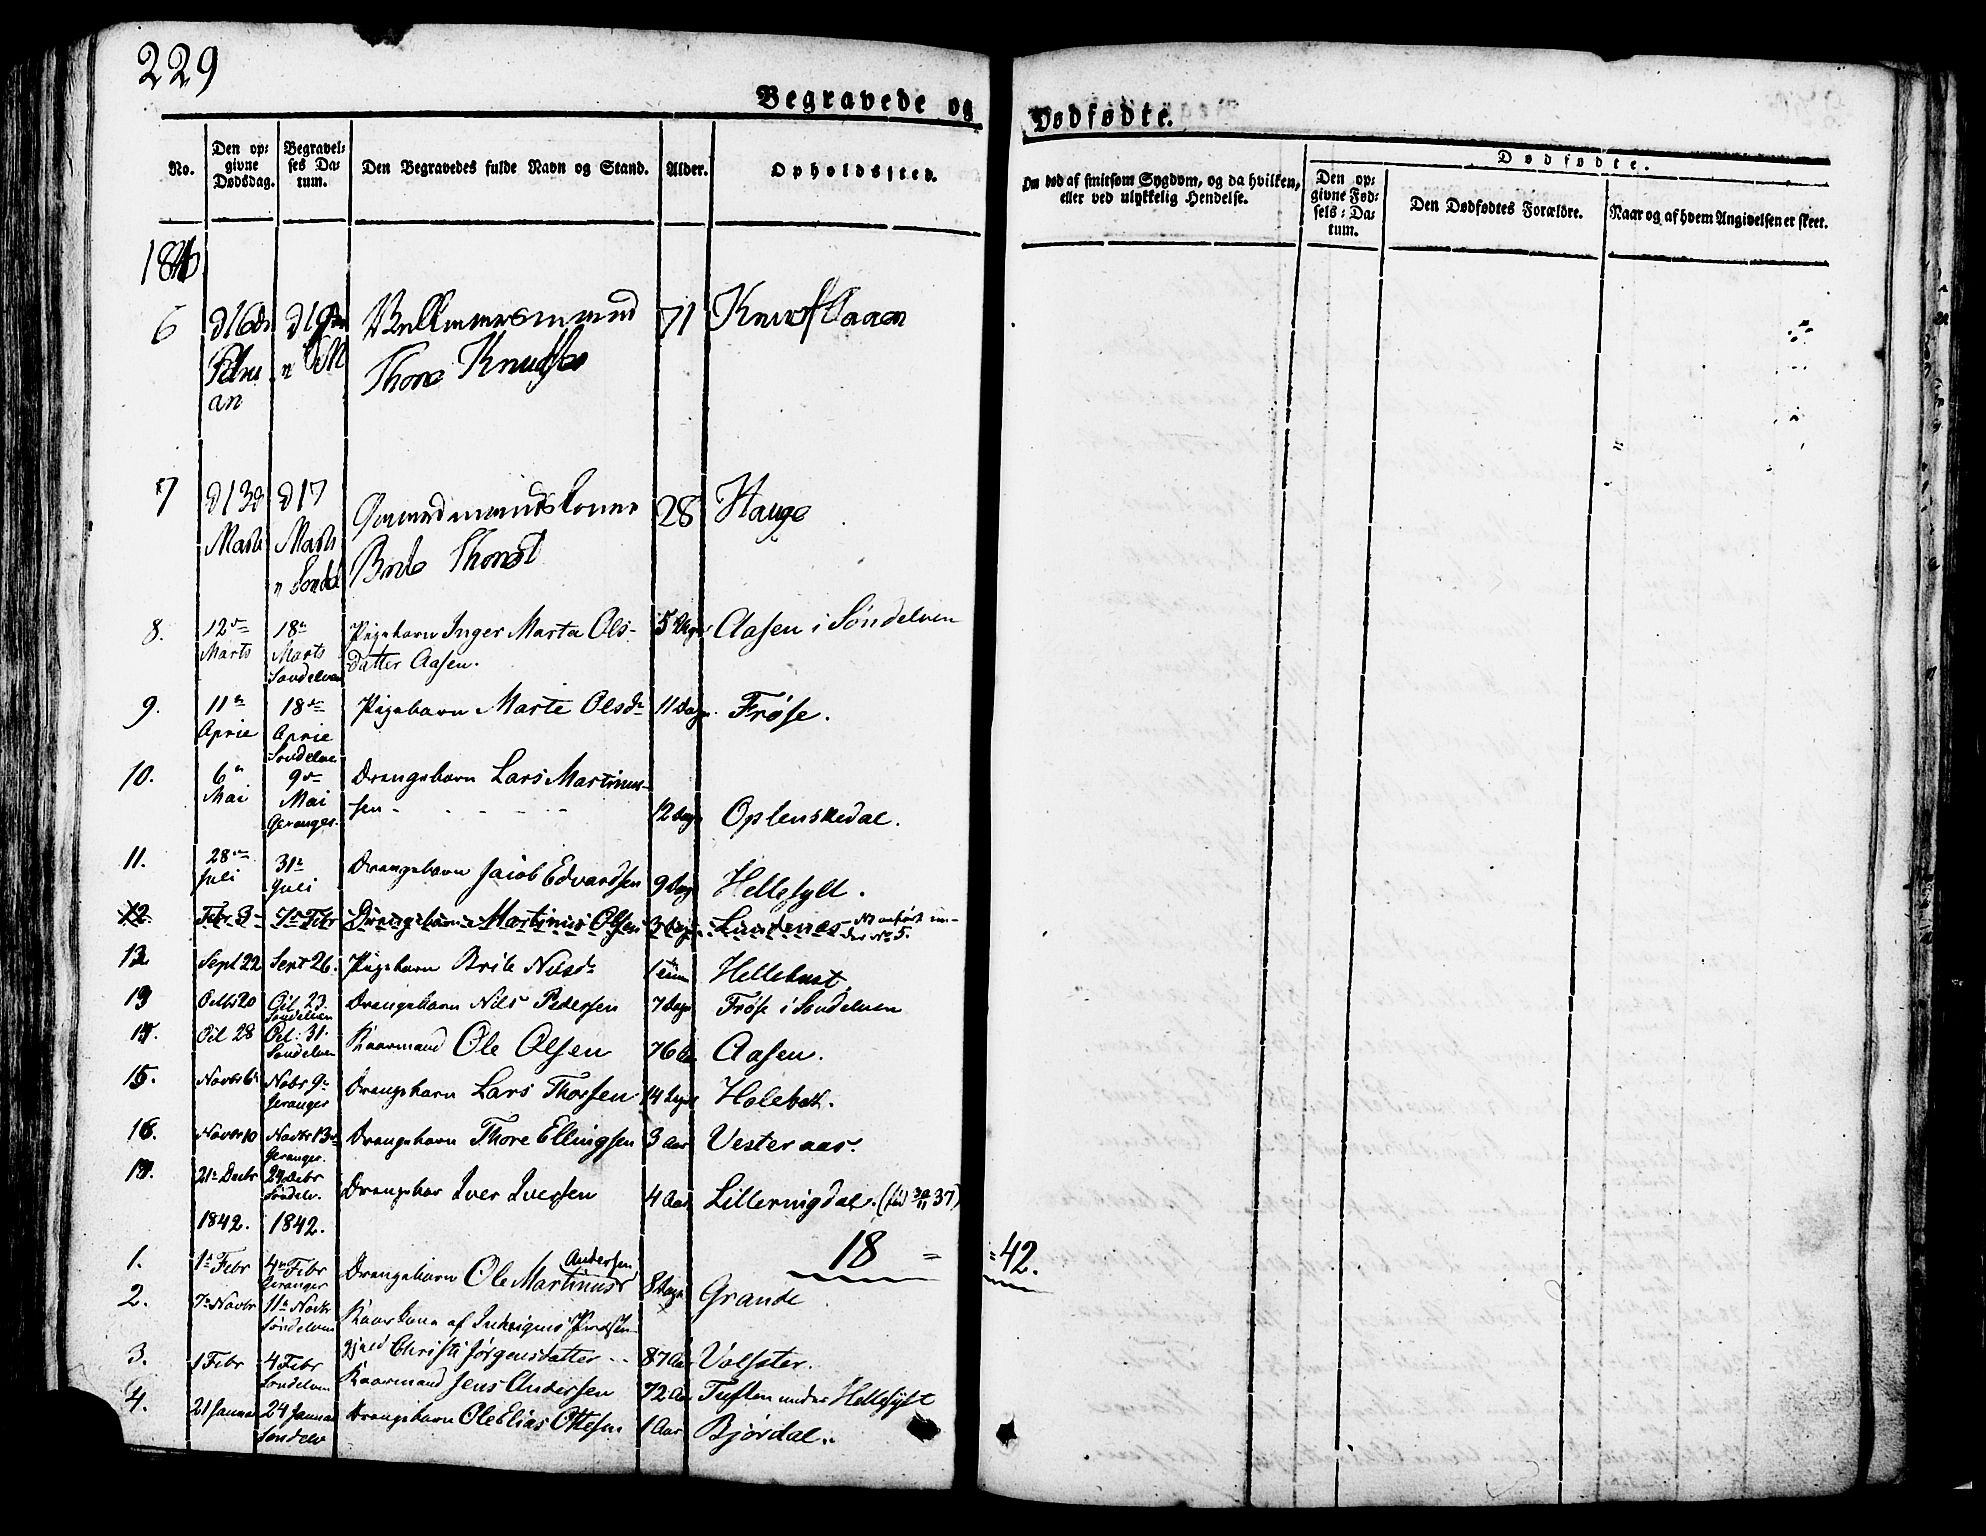 229
Begravede og Dødfødte.
No.
Den opgivne Dødsdag.
Begravelses Datum.
Den Begravedes fulde Navn og Stand.
Alder.
Opholdssted.
Om død af smitsom Sygdom, og da hvilken, eller ved ulykkelig Hendelse.
Dødfødte.
Den opgivne Fødsels-Datum.
Den Dødfødtes Forældre.
Naar og af hvem Angivelsen er skeet.
6 d 16de d 19de 71
Thore Knudsen
7 d 13d Marts d 17 Marts 28 Hauge
8. 12te Marts 18de Marts Søndelven Pigebarn Inger Marta Ols- 5 Dage Aasen i Søndelven
datter Aasen.
9. 11te April 18de April Søndelven Pigebarn Marte Olsdr 11 Dage Frøse.
10. 6te Mai 9de Mai Geranger. Drengebarn Lars Martinus-
sen 12 Dage Oplenskedal.
11. 28de Juli 31te Juli Drengebarn Jacob Edvardsen 9 Dage Hellesylt.
12. Febr 3 Febr Drengebarn Martinus Olsen 3 Dage Lundenes No anført un-
der No 5.
12 Sept 22 Sept 26. Pigebarn Brite Nilsdr Hellebust
13 Octbr 20 Oct. 23 Søndelven Drengebarn Nils Pedersen 7 Dage Frøse i Søndelven
14. Oct 28 Oct. 31. Søndelven Kaarmand Ole Olsen 76 Aar Aasen.
15. Novbr 6te Novbr 9de Geranger Drengebarn Lars Thorsen 14 Dage Holebak.
16. Novbr 10 Novbr 13de Geranger. Drengebarn Thore Ellingsen 3 Aar Vesteraas.
17. 21te Decbr Decbr Søndelv. Drengebar Iver Iversen 4 Aar Lilleringdal. (fød 30/11 37)
1842. 1842. 18 = = 42.
1. 1te Febr 4de Febr Geranger Drengebarn Ole Martinus Andersen 8 Dage Grande
2. 7de Novbr 11te Novbr Søndelven Kaarkone af
Christi Jørgensdatter 87 Aar Volsater.
3. 1 Febr 4 Febr Søndelven Kaarmand Jens Andersen 72 Aar Tuften under Hellesylt
4. 21 Januar 24 Januar Søndelv Drengebarn Ole Elias Ottesen 1 Aar Bjørdal.